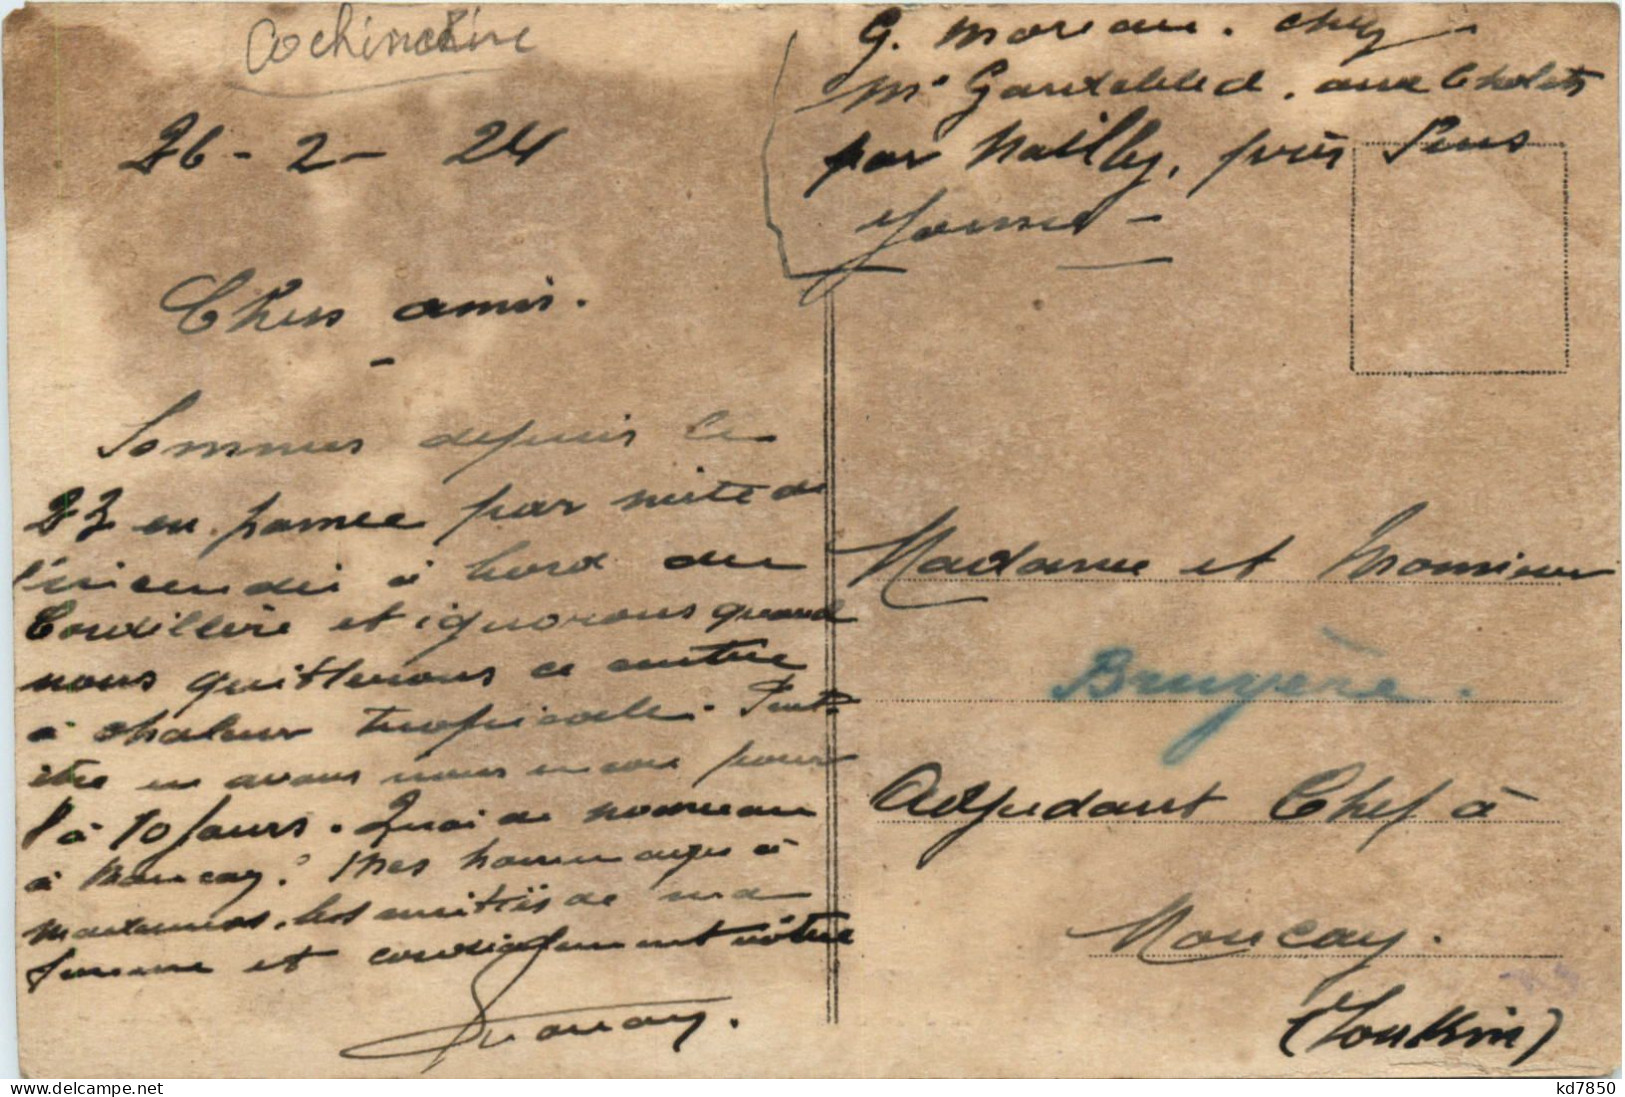 Cochinchine
26 - 2 - 24
G. Moreau. chez
Mr , aux Cholets
par Nailly, près Sens
Yonne -
Chers amis.
Sommes depuis le
23 en panne par suite de
l'incendie à bord du
Cordillère et ignorons quand
nous quitterons ce centre
à chaleur tropicale. Peut-
être en avons nous encore pour
8 à 10 jours. Quoi de nouveau
à Moncay ? Mes hommages à
Madame, les amitiés de ma
femme et cordialement vôtre
Madame et Monsieur
Bruyère.
Adjudant Chef à
Moncay.
(Tonkin)
kd7850